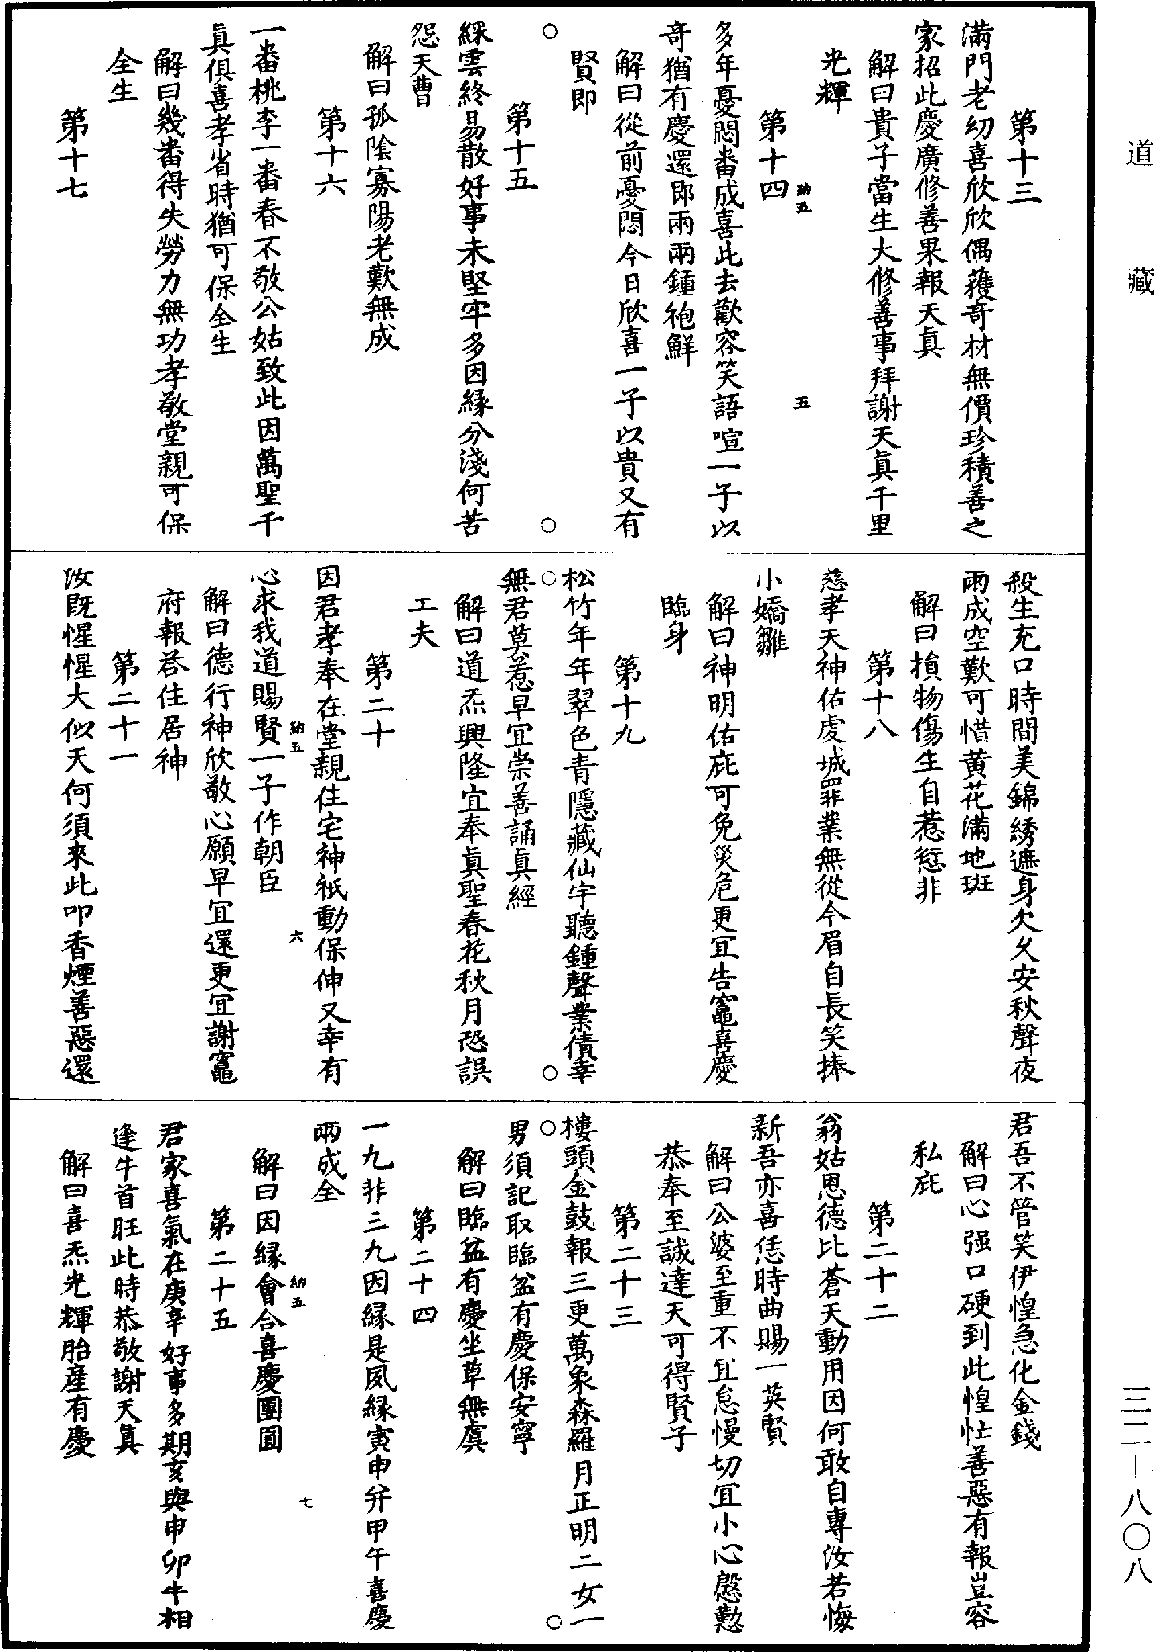 道藏
第十三
滿門老幼喜欣欣偶獲奇材無價珍積善之
家招此慶廣修善果報天真
解曰貴子當生大修善事拜謝天真千里
光輝
納五
五
第十四
多年憂悶番成喜此去歡容笑語喧一子以
奇猶有慶還即兩兩鍾袍鮮
解曰從前憂悶今日欣喜一子以貴又有
賢即
○ ○
第十五
綵雲終易散好事未堅牢多因緣分淺何苦
怨天曹
解曰孤陰寡陽老歎無成
第十六
一番桃李一番春不敬公姑致此因萬聖千
真俱喜孝省時猶可保全生
解曰幾番得失勞力無功孝敬堂親可保
全生
第十七
殺生充口時間美錦綉遮身欠久安秋聲夜
雨成空歎可惜黃花滿地班
解曰損物傷生自惹愆非
第十八
慈孝天神佑虔城罪業無從今眉自長笑捧
小嬌雛
解曰神明佑庇可免災危更宜告竈喜慶
臨身
第十九
松竹年年翠色青隱藏仙宇聽鍾聲業債幸
○ ○
無君莫惹早宜崇善誦真經
解曰道炁興隆宜奉真聖春花秋月恐誤
工夫
第二十
因君孝奉在堂親住宅神祇動保伸又幸有
納五
六
心求我道賜賢一子作朝臣
解曰德行神欣敬心願早宜還更宜謝竈
府報荅住居神
第二十一
汝既惺惺大似天何須來此叩香煙善惡還
君吾不管笑伊惶急化金錢
解曰心强口硬到此惶忙善惡有報豈容
私庇
第二十二
翁姑恩德比蒼天動用因何敢自專汝若悔
新吾亦喜恁時曲賜一英賢
解曰公婆至重不宜怠慢切宜小心慇懃
恭奉至誠達天可得賢子
第二十三
樓頭金鼓報三更萬象森羅月正明二女一
○ ○
男須記取臨盆有慶保安寧
解曰臨盆有慶坐草無虞
第二十四
一九非三九因緣是夙緣寅申并甲午喜慶
兩成全
納五
七
解曰因緣會合喜慶團圓
第二十五
君家喜氣在庚辛好事多期亥與申卯牛相
逢牛首旺此時恭敬謝天真
解曰喜炁光輝胎產有慶
三二—八〇八